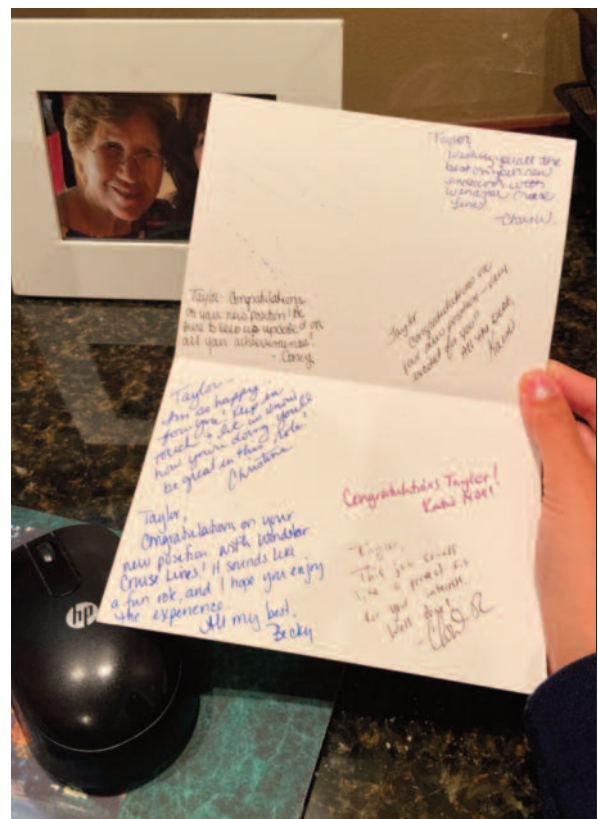 Taylor,
Wishing you all the
best on your new
endeavor with
Windstar Cruise
Lines!
Taylor- Congratulations
on your new position! Be
sure to keep us updated on
all your achievements!
- Corey
Taylor
Congratulations on
your new position - very
excited for you!!
All the best,
Taylor-
I'm so happy
for you! Keep in
touch & let us know
how you're doing. You'll
be great in this role!
Christina
Congratulations Taylor!
Katie
Taylor,
Congratulations on your
new position with Windstar
Cruise Lines! It sounds like
a fun role, and I hope you enjoy
the experience.
All my best,
Becky
Taylor,
This job sounds
like a perfect fit
for your interests.
Well done!
hp